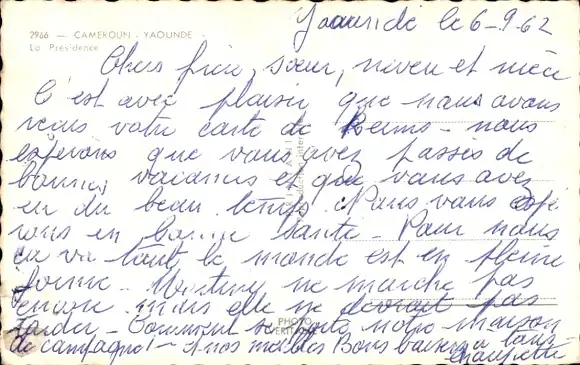 Yaoundé le 6-9-62
2966 — CAMEROUN - YAOUNDE -
La Présidence
Chers frère, sœur, neveu et nièce
C'est avec plaisir que nous avons
reçus votre carte de Reims - nous
espérons que vous avez passés de
bonnes vacances et que vous avez
eu du beau temps. Nous vous espé
rons en bonne santé - Pour nous
ça va tout le monde est en pleine
forme - ne marche pas
encore mais elle ne devrait pas
tarder - Comment se porte notre maison
de campagne! - et nos meubles Bons baisers à tous
PHOTO
VERITABLE